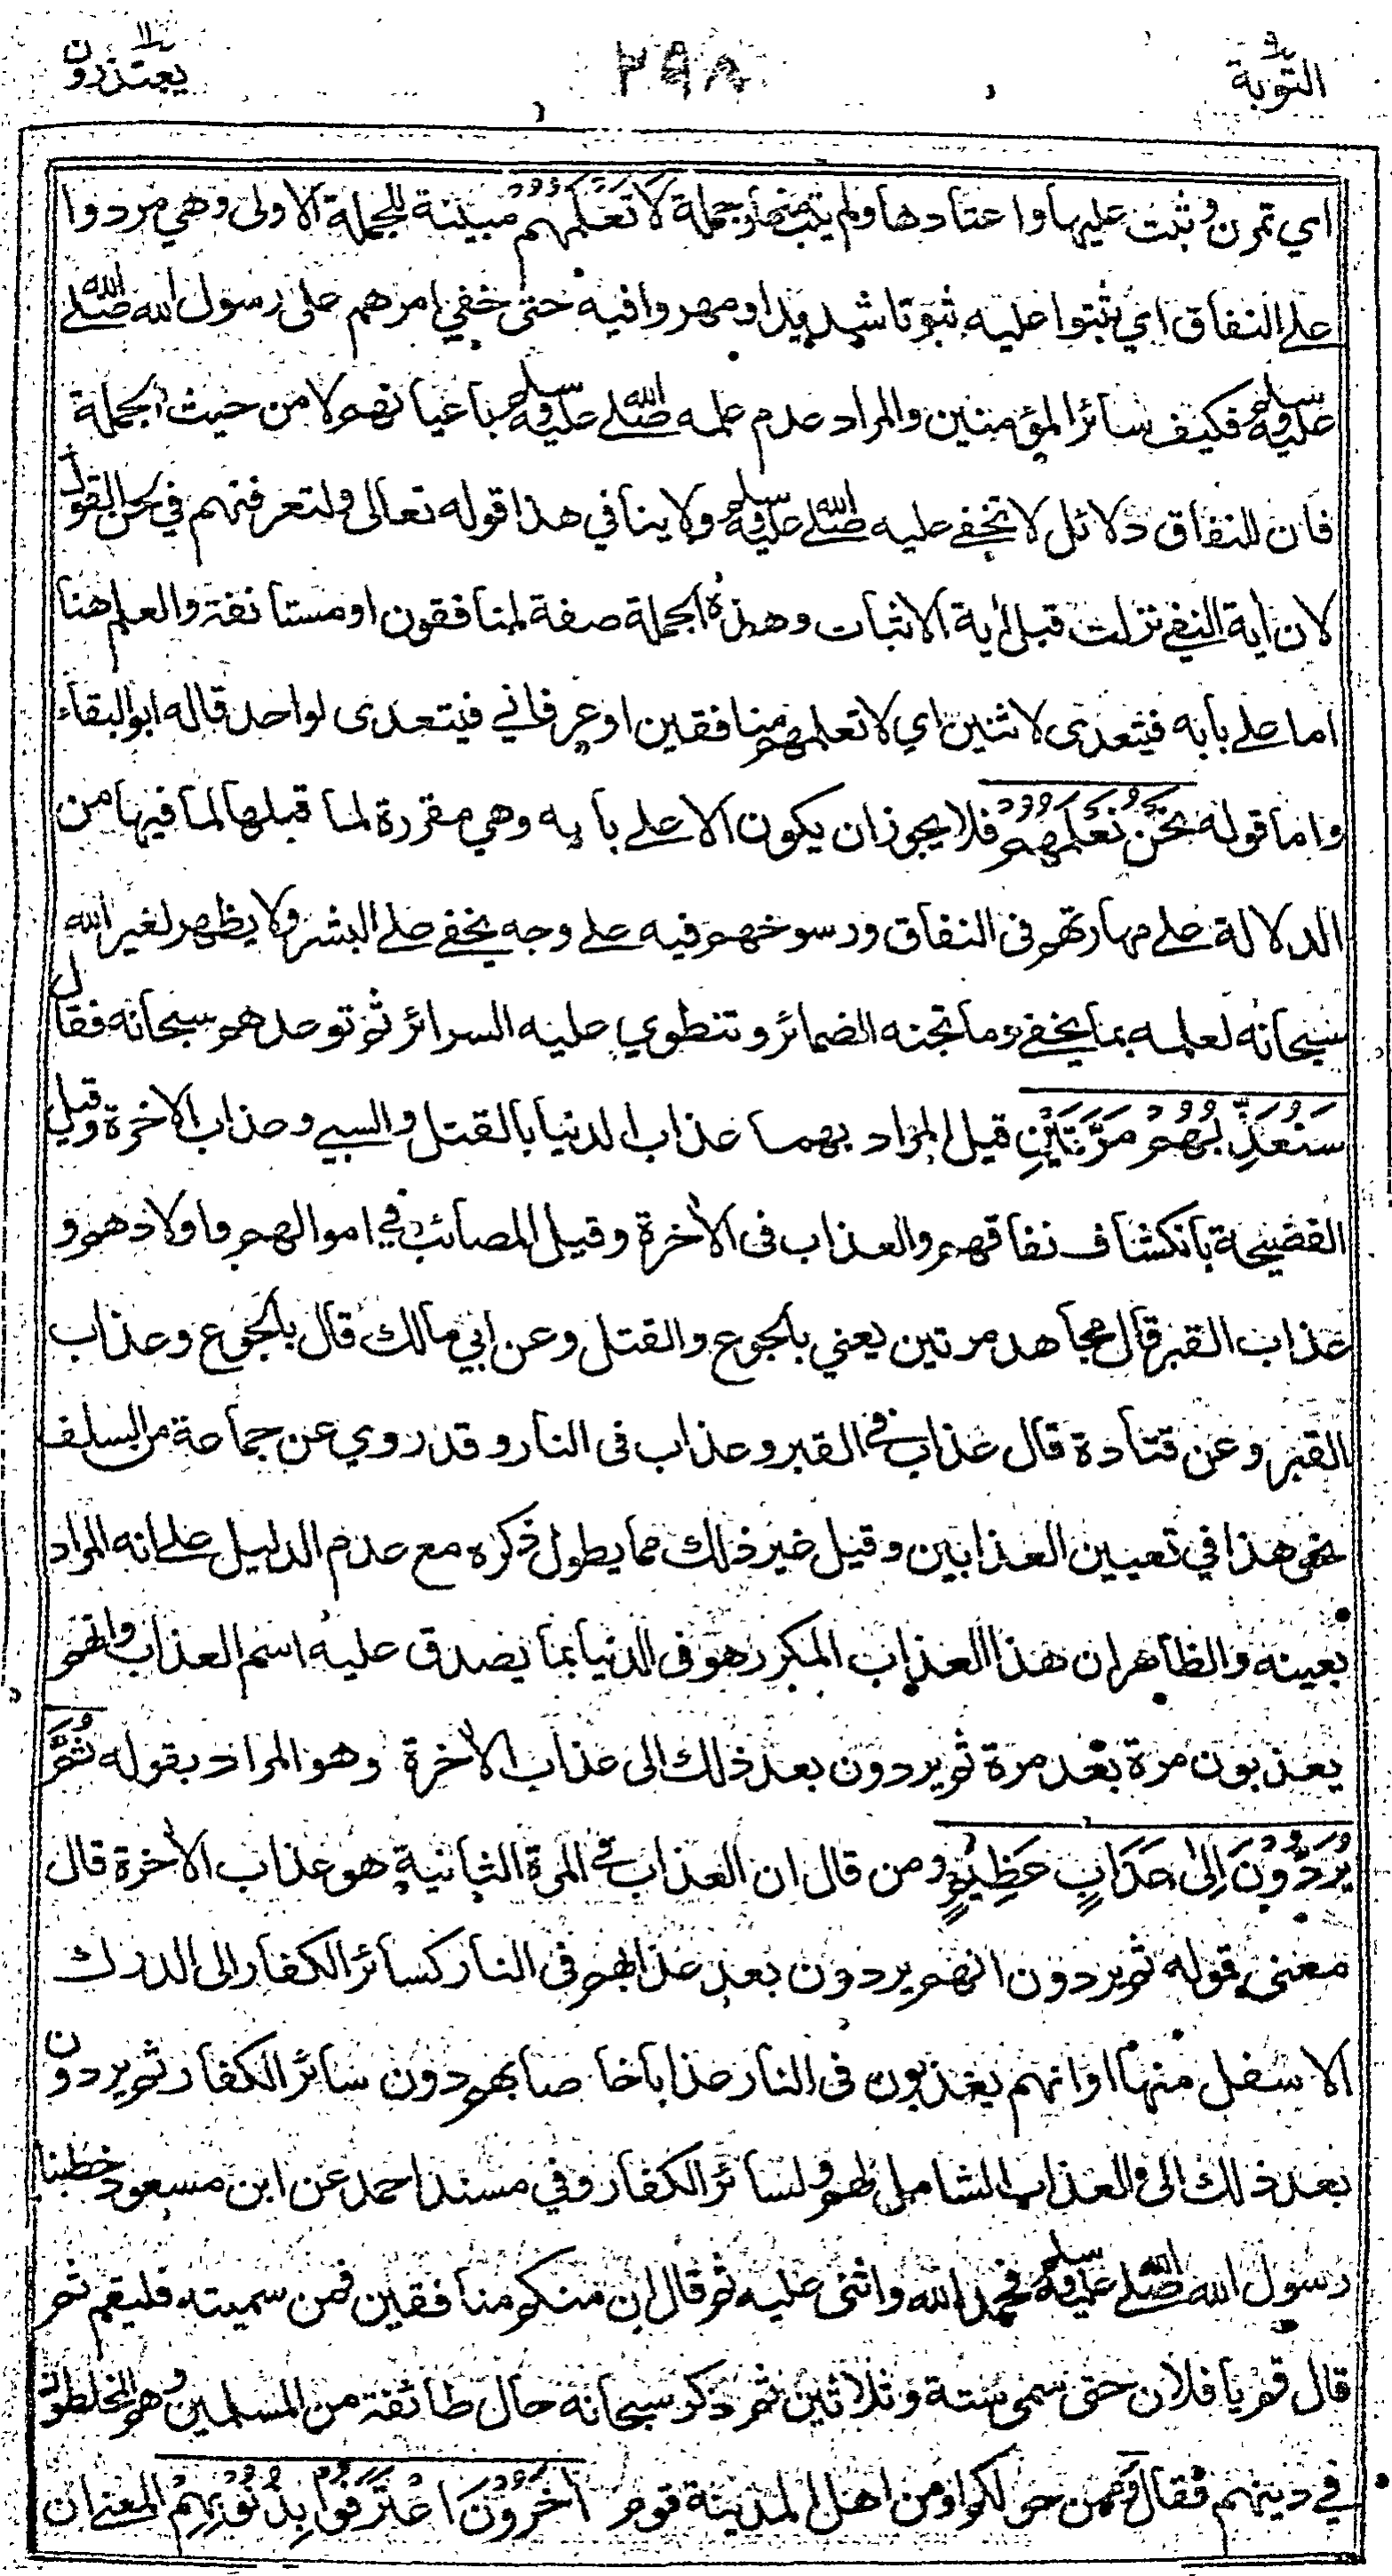 التوبة ٩
٢٩٨
يعتذرون ١١
اي تمرن وثبت عليها واعتادها ولم يتب منها وجملة لَا تَعْلَمُهُمْ مبينة للجملة الاولى وهي مردوا
على النفاق اي ثبتوا عليه ثبوتا شديدا ومهروا فيه حتى خفي امرهم على رسول الله صلى الله
عليه وسلم فكيف سائر المؤمنين والمراد عدم علمه صلى الله عليه وسلم باعيانهم لا من حيث الجملة
فان للنفاق دلائل لا تخفى عليه صلى الله عليه وسلم ولا ينافي هذا قوله تعالى ولتعرفنهم في لحن القول
لان أية النفي نزلت قبل أية الاثبات وهذه الجملة صفة لمنافقون او مستانفة والعلم هنا
اما على بابه فيتعدى لاثنين اي لا تعلمهم منافقين او عرفاني فيتعدى لواحد قاله ابو البقاء
واما قوله نَحْنُ نَعْلَمُهُمْ فلا يجوز ان يكون الا على بابه وهي مقررة لما قبلها لما فيها من
الدلالة على مهارتهم فى النفاق ورسوخهم فيه على وجه يخفى على البشر ولا يظهر لغير الله
سبحانه لعلمه بما يخفى وما تجنه الضمائر وتنطوي عليه السرائر ثم توعدهم سبحانه فقال
سَنُعَذِّبُهُمْ مَرَّتَيْنِ قيل المراد بهما عذاب الدنيا بالقتل والسبي وعذاب الاخرة وقيل
الفضيحة بانكشاف نفاقهم والعذاب فى الأخرة وقيل المصائب في اموالهم واولادهم و
عذاب القبر قال مجاهد مرتين يعني بالجوع والقتل وعن ابي مالك قال بالجوع وعذاب
القبر وعن قتادة قال عذاب في القبر وعذاب فى النار وقد روي عن جماعة من السلف
نحو هذا في تعيين العذابين وقيل غير ذلك مما يطول ذكره مع عدم الدليل على انه المراد
بعينه والظاهر ان هذا العذاب المكرر هو فى الدنيا بما يصدق عليه اسم العذاب وانهم
يعذبون مرة بعد مرة ثم يردون بعد ذلك الى عذاب الأخرة وهو المراد بقوله ثُمَّ
يُرَدُّونَ اِلٰى عَذَابٍ عَظِيْمٍ ومن قال ان العذاب في المرة الثانية هو عذاب الأخرة قال
معنى قوله ثم يردون انهم يردون بعد عذابهم فى النار كسائر الكفار الى الدرك
الاسفل منها او انهم يعذبون فى النار عذابا خاصا بهم دون سائر الكفار ثم يردون
بعد ذلك الى العذاب الشامل لهم ولسائر الكفار وفي مسند احمد عن ابن مسعود خطبنا
رسول الله صلى الله عليه وسلم فحمد الله واثنى عليه ثم قال ان منكم منافقين فمن سميته فليقم ثم
قال قم يا فلان حتى سمى ستة وثلاثين ثم ذكر سبحانه حال طائفة من المسلمين وهم المخلطون
في دينهم فقال وممن حولكم او من اهل المدينة قوم اٰخَرُوْنَ اعْتَرَفُوْا بِذُنُوْبِهِمْ المعنى ان